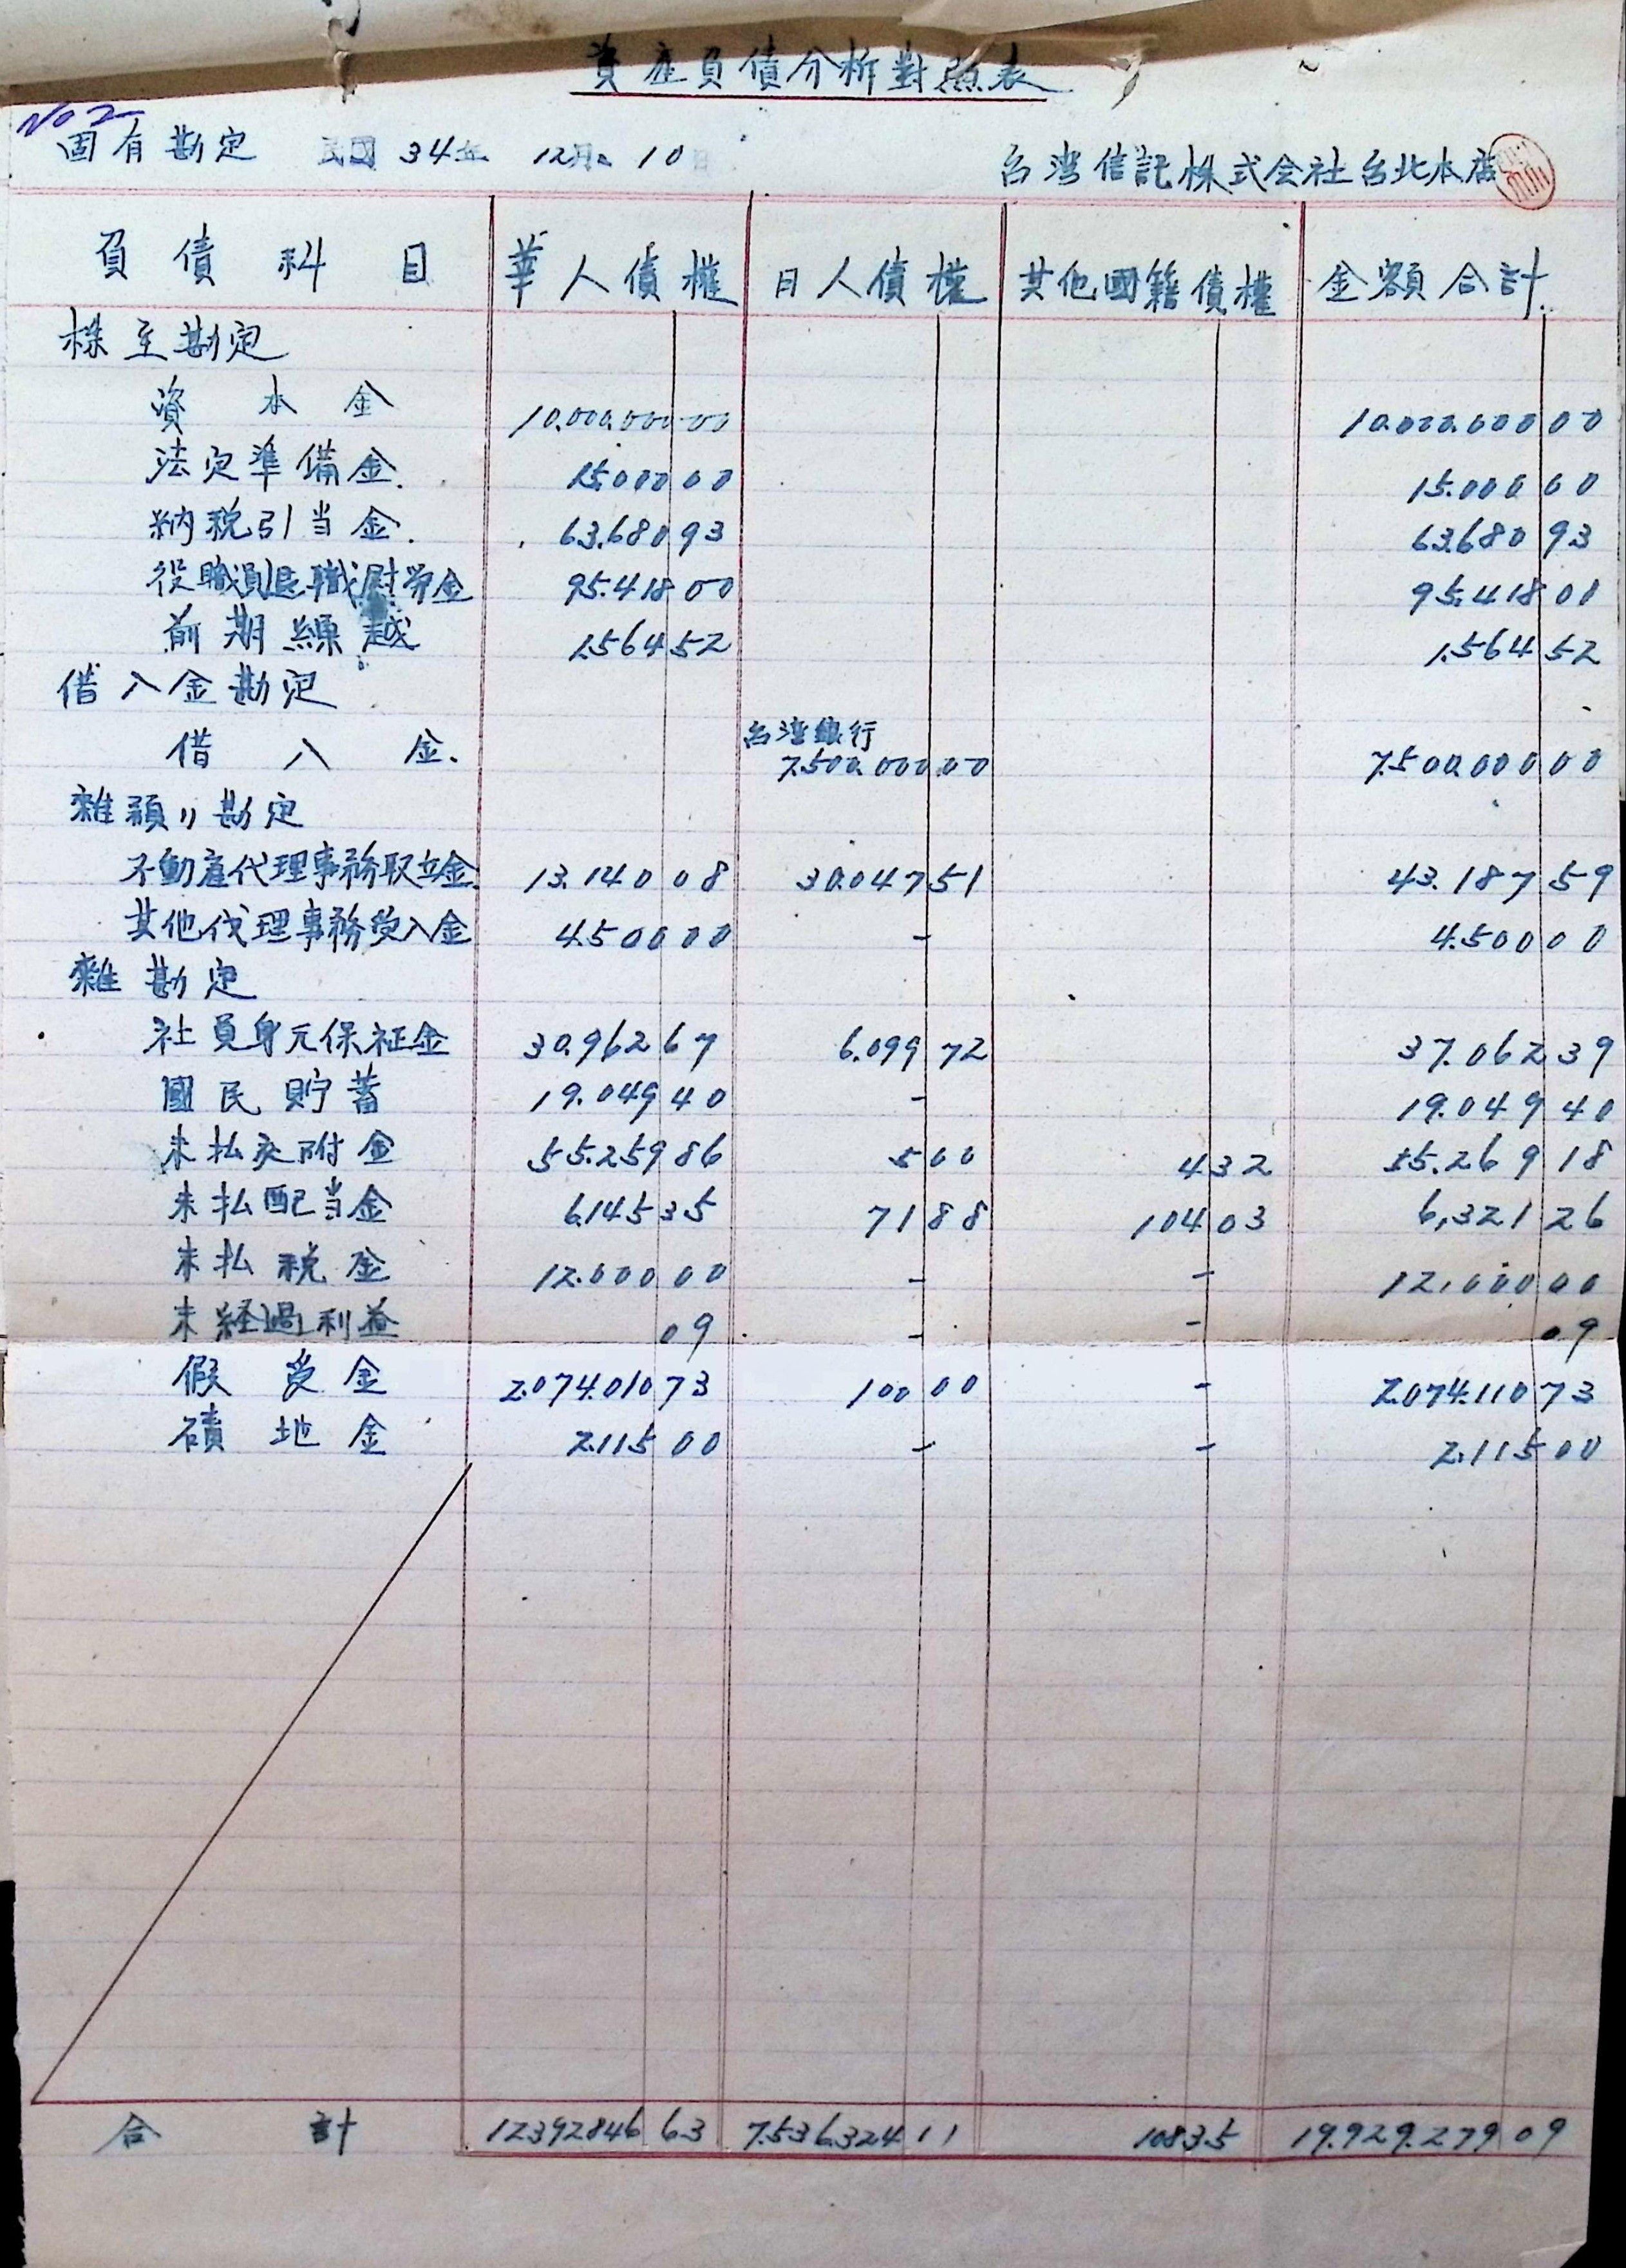 資産負債分析對照表
No 2
固有勘定 民國 34年 12月 10日
台湾信託株式会社台北本店
負債科目 華人債權 日人債權 其他國籍債權 金額合計
株主勘定
資本金 10.000.000 00 10.000.000 00
法定準備金. 15.000 00 15.000 00
納税引当金. 63.680 93 63.680 93
役職員退職慰労金 95.418 00 95.418 00
前期繰越 1.564 52 1.564 52
借入金勘定
台湾銀行
借入金. 7.500.000.00 7.500.000 00
雜預リ勘定
不動産代理事務取立金. 13.140 08 30.047 51 43.187 59
其他代理事務受入金 4.500 00 - 4.500 00
雜勘定
社員身元保証金 30.962 67 6.099 72 37.062 39
國民貯蓄 19.049 40 - 19.049 40
未払交附金 55.259 86 5 00 4 32 55.269 18
未払配当金 6.145 35 71 88 104 03 6,321 26
未払税金 12.000 00 - - 12,000 00
未経過利益 09 - - 09
假受金 2.074.010 73 100 00 - 2.074.110 73
積地金 2.115 00 - - 2.115 00
合計 12392846 63 7.536.324 11 108 35 19.929.279 09